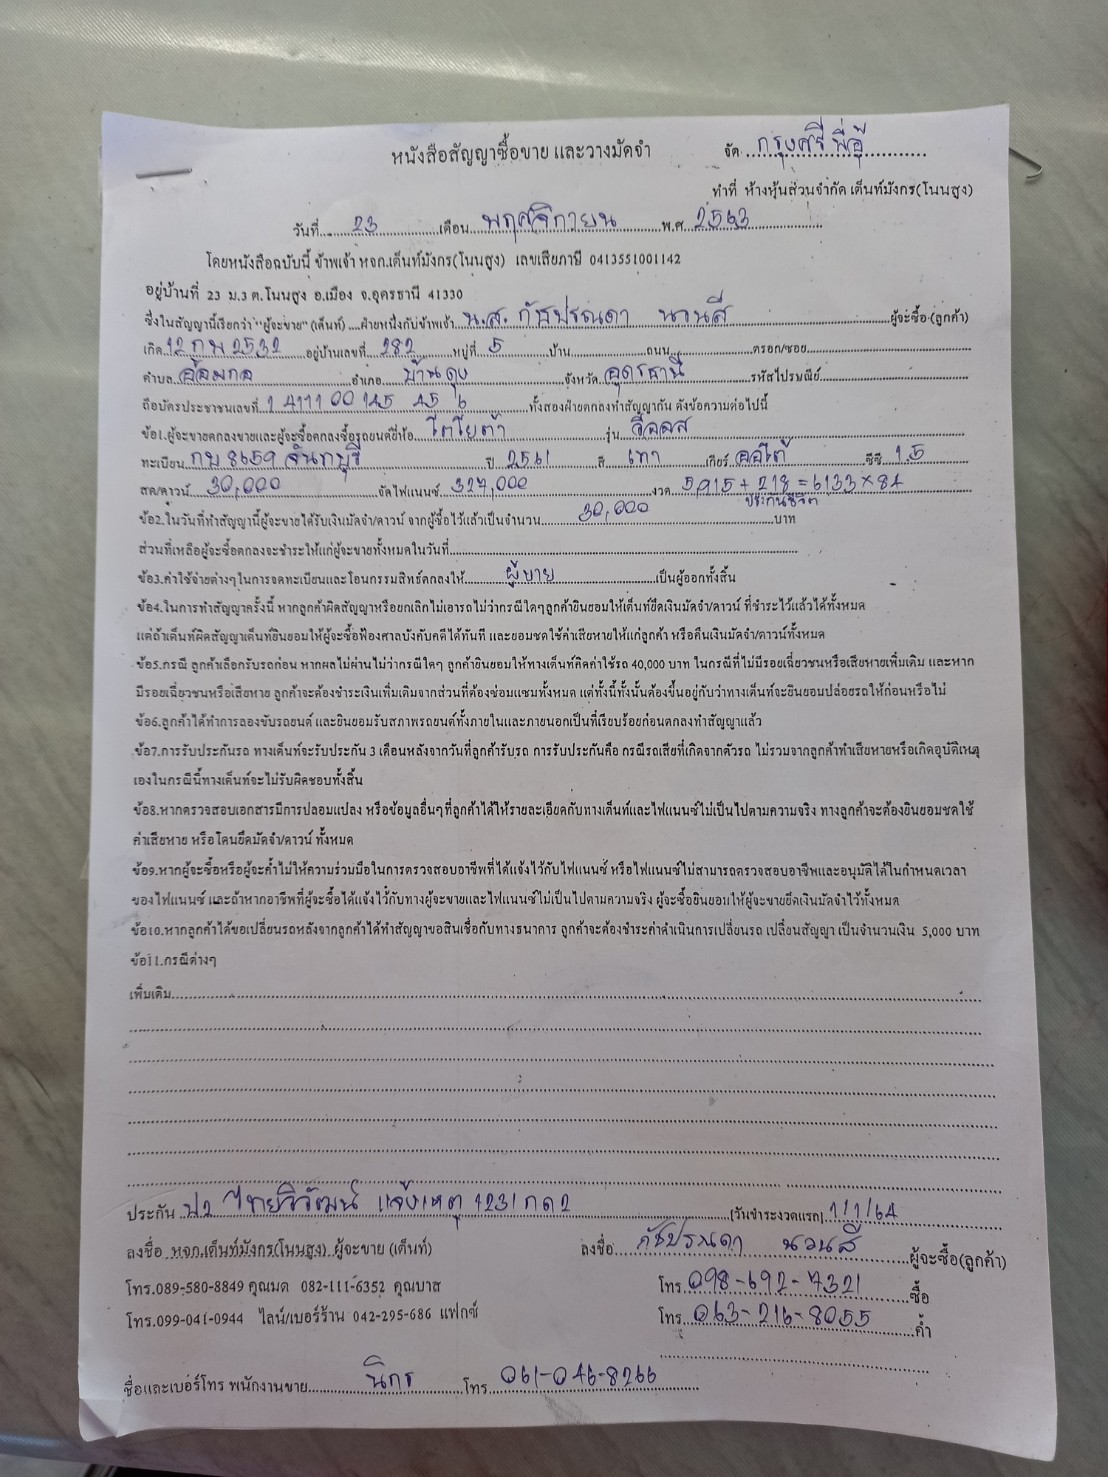 หนังสือสัญญาซื้อขาย และวางมัดจำ
จัด กรุงศรี พี่อู๊
ทำที่ ห้างหุ้นส่วนจำกัด เต็นท์มังกร(โนนสูง)
วันที่ 23 เดือน พฤศจิกายน พ.ศ. 2563
โดยหนังสือฉบับนี้ ข้าพเจ้า หจก.เต็นท์มังกร(โนนสูง) เลขเสียภาษี 0413551001142
อยู่บ้านที่ 23 ม.3 ต.โนนสูง อ.เมือง จ.อุดรธานี 41330
ซึ่งในสัญญานี้เรียกว่า "ผู้จะขาย" (เต็นท์) ฝ่ายหนึ่งกับข้าพเจ้า น.ส. กัชปรณดา นวนสี ผู้จะซื้อ (ลูกค้า)
เกิด 12 กพ 2532 อยู่บ้านเลขที่ 282 หมู่ที่ 5 บ้าน ถนน ตรอก/ซอย
ตำบล อ้อมกอ อำเภอ บ้านดุง จังหวัด อุดรธานี รหัสไปรษณีย์
ถือบัตรประชาชนเลขที่ 1 4111 00 145 45 6 ทั้งสองฝ่ายตกลงทำสัญญากัน ดังข้อความต่อไปนี้
ข้อ1.ผู้จะขายตกลงขายและผู้จะซื้อตกลงซื้อรถยนต์ยี่ห้อ โตโยต้า รุ่น วีออส
ทะเบียน กบ 8659 จันทบุรี ปี 2561 สี เทา เกียร์ ออโต้ ซีซี 1.5
สด/ดาวน์ 30,000 จัดไฟแนนซ์ 327,000 งวด 5,915 + 218 = 6133 × 84
ประกันชีวิต
ข้อ2.ในวันที่ทำสัญญานี้ผู้จะขายได้รับเงินมัดจำ/ดาวน์ จากผู้ซื้อไว้แล้วเป็นจำนวน 30,000 บาท
ส่วนที่เหลือผู้จะซื้อตกลงจะชำระให้แก่ผู้จะขายทั้งหมดในวันที่
ข้อ3.ค่าใช้จ่ายต่างๆในการจดทะเบียนและโอนกรรมสิทธ์ตกลงให้ ผู้ขาย เป็นผู้ออกทั้งสิ้น
ข้อ4.ในการทำสัญญาครั้งนี้ หากลูกค้าผิดสัญญาหรือยกเลิกไม่เอารถไม่ว่ากรณีใดๆลูกค้ายินยอมให้เต็นท์ยึดเงินมัดจำ/ดาวน์ ที่ชำระไว้แล้วได้ทั้งหมด
แต่ถ้าเต็นท์ผิดสัญญาเต็นท์ยินยอมให้ผู้จะซื้อฟ้องศาลบังคับคดีได้ทันที และยอมชดใช้ค่าเสียหายให้แก่ลูกค้า หรือคืนเงินมัดจำ/ดาวน์ทั้งหมด
ข้อ5.กรณี ลูกค้าเลือกรับรถก่อน หากผลไม่ผ่านไม่ว่ากรณีใดๆ ลูกค้ายินยอมให้ทางเต็นท์คิดค่าใช้รถ 40,000 บาท ในกรณีที่ไม่มีรอยเฉี่ยวชนหรือเสียหายเพิ่มเติม และหาก
มีรอยเฉี่ยวชนหรือเสียหาย ลูกค้าจะต้องชำระเงินเพิ่มเติมจากส่วนที่ต้องซ่อมแซมทั้งหมด แต่ทั้งนี้ทั้งนั้นต้องขึ้นอยู่กับว่าทางเต็นท์จะยินยอมปล่อยรถให้ก่อนหรือไม่
ข้อ6.ลูกค้าได้ทำการลองขับรถยนต์ และยินยอมรับสภาพรถยนต์ทั้งภายในและภายนอกเป็นที่เรียบร้อยก่อนตกลงทำสัญญาแล้ว
ข้อ7.การรับประกันรถ ทางเต็นท์จะรับประกัน 3 เดือนหลังจากวันที่ลูกค้ารับรถ การรับประกันคือ กรณีรถเสียที่เกิดจากตัวรถ ไม่รวมจากลูกค้าทำเสียหายหรือเกิดอุบัติเหตุ
เองในกรณีนี้ทางเต็นท์จะไม่รับผิดชอบทั้งสิ้น
ข้อ8.หากตรวจสอบเอกสารมีการปลอมแปลง หรือข้อมูลอื่นๆที่ลูกค้าได้ให้รายละเอียดกับทางเต็นท์และไฟแนนซ์ไม่เป็นไปตามความจริง ทางลูกค้าจะต้องยินยอมชดใช้
ค่าเสียหาย หรือโดนยึดมัดจำ/ดาวน์ ทั้งหมด
ข้อ9.หากผู้จะซื้อหรือผู้จะค้ำไม่ให้ความร่วมมือในการตรวจสอบอาชีพที่ได้แจ้งไว้กับไฟแนนซ์ หรือไฟแนนซ์ไม่สามารถตรวจสอบอาชีพและอนุมัติได้ในกำหนดเวลา
ของไฟแนนซ์ และถ้าหากอาชีพที่ผู้จะซื้อได้แจ้งไว้กับทางผู้จะขายและไฟแนนซ์ไม่เป็นไปตามความจริง ผู้จะซื้อยินยอมให้ผู้จะขายยึดเงินมัดจำไว้ทั้งหมด
ข้อ10.หากลูกค้าได้ขอเปลี่ยนรถหลังจากลูกค้าได้ทำสัญญาขอสินเชื่อกับทางธนาคาร ลูกค้าจะต้องชำระค่าดำเนินการเปลี่ยนรถ เปลี่ยนสัญญา เป็นจำนวนเงิน 5,000 บาท
ข้อ11.กรณีต่างๆ
เพิ่มเติม
ประกัน ป2 ไทยวิวัฒน์ แจ้งเหตุ 1231 กด2 (วันชำระงวดแรก) 1/1/64
ลงชื่อ หจก.เต็นท์มังกร(โนนสูง) ผู้จะขาย (เต็นท์) ลงชื่อ กัชปรณดา นวนสี ผู้จะซื้อ(ลูกค้า)
โทร.089-580-8849 คุณมด 082-111-6352 คุณบาส โทร. 098-692-7321 ซื้อ
โทร.099-041-0944 ไลน์/เบอร์ร้าน 042-295-686 แฟกซ์ โทร. 063-216-8055 ค้ำ
ชื่อและเบอร์โทร พนักงานขาย นิกร โทร 061-046-8266